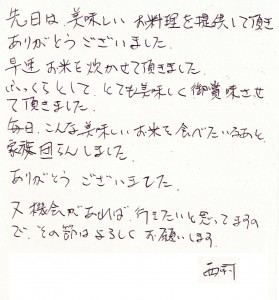 先日は、美味しいお料理を提供して頂き
ありがとうございました。
早速お米を炊かせて頂きました。
ふっくらとして、とても美味しく御賞味させ
て頂きました。
毎日、こんな美味しいお米を食べたいなあと、
家族団らんしました。
ありがとうございました。
又機会があれば、行きたいと思ってますの
で、その節はよろしくお願いします。